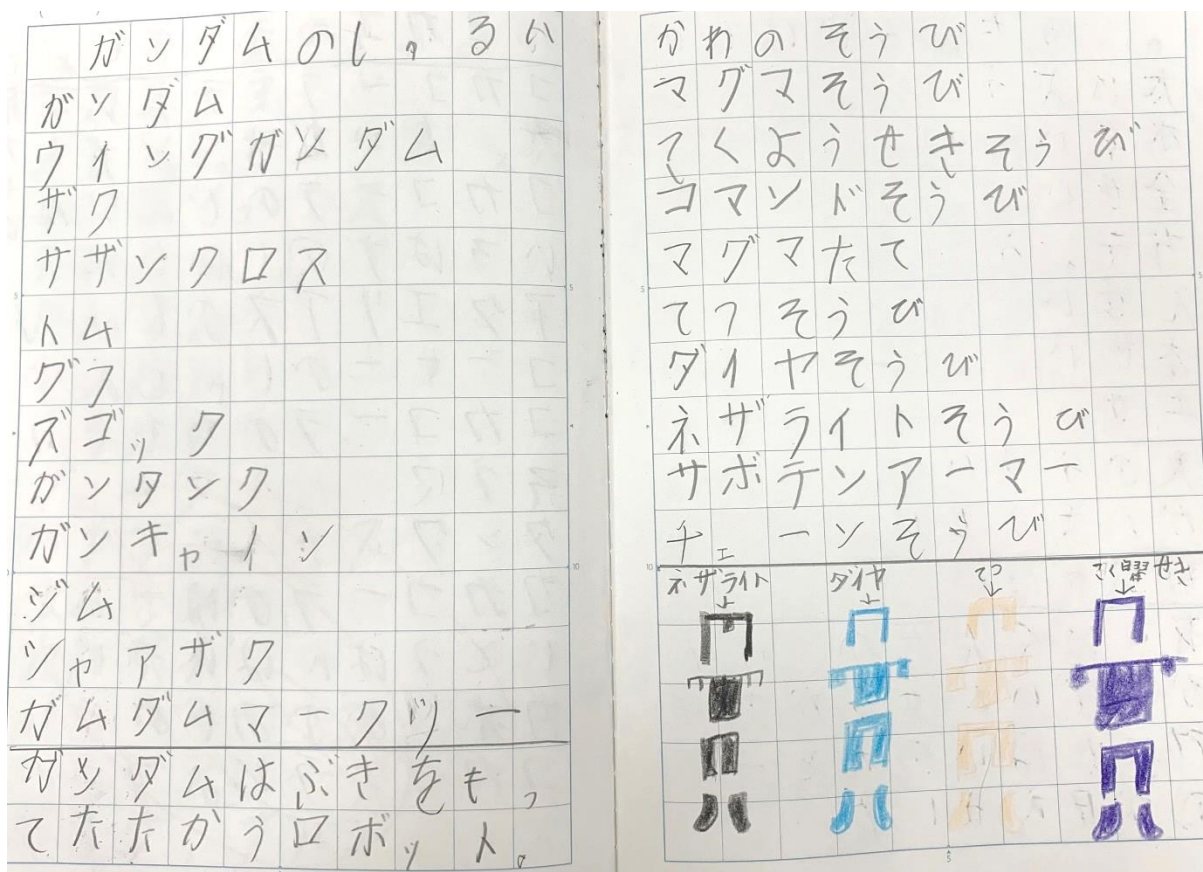 ガンダムのしゅるい
ガンダム
ウイングガンダム
ザク
サザンクロス
トム
グフ
ズゴック
ガンタンク
ガンキャイン
ジム
シャアザク
ガムダムマークツー
ガンダムはぶきをもっ
てたたかうロボット。
かわのそうび
マグマそうび
こくようせきそうび
コマンドそうび
マグマたて
てつそうび
ダイヤそうび
ネザライトそうび
サボテンアーマー
チェーンそうび
ネザライト ダイヤ てつ こく曜せき